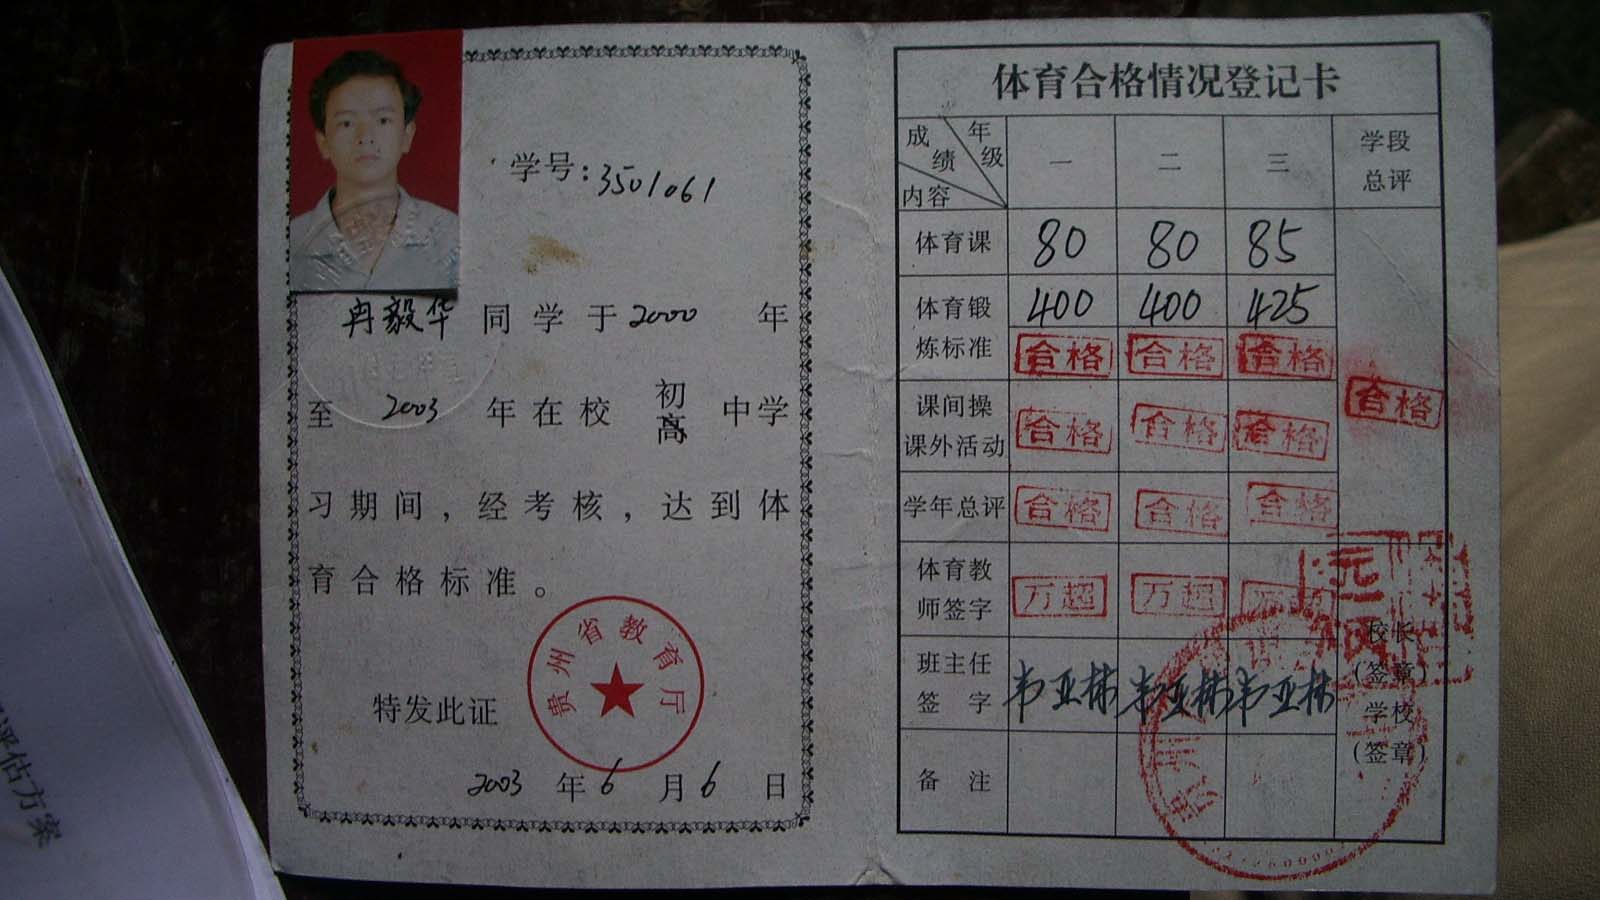 学号:3501061
冉毅华 同学于2000 年
至 2003 年在校 初 中学
高
习期间，经考核，达到体
育合格标准。
特发此证
贵州省教育厅
2003 年 6 月 6 日
体育合格情况登记卡
成绩 年级 内容 一 二 三 学段总评
体育课 80 80 85
体育锻炼标准 400 400 425
合格 合格 合格
合格
课间操
课外活动 合格 合格 合格
学年总评 合格 合格 合格
体育教师签字 万超 万超 万超
班主任签字 韦亚林 韦亚林 韦亚林
校长
(签章)
学校
(签章)
备注
评估方案